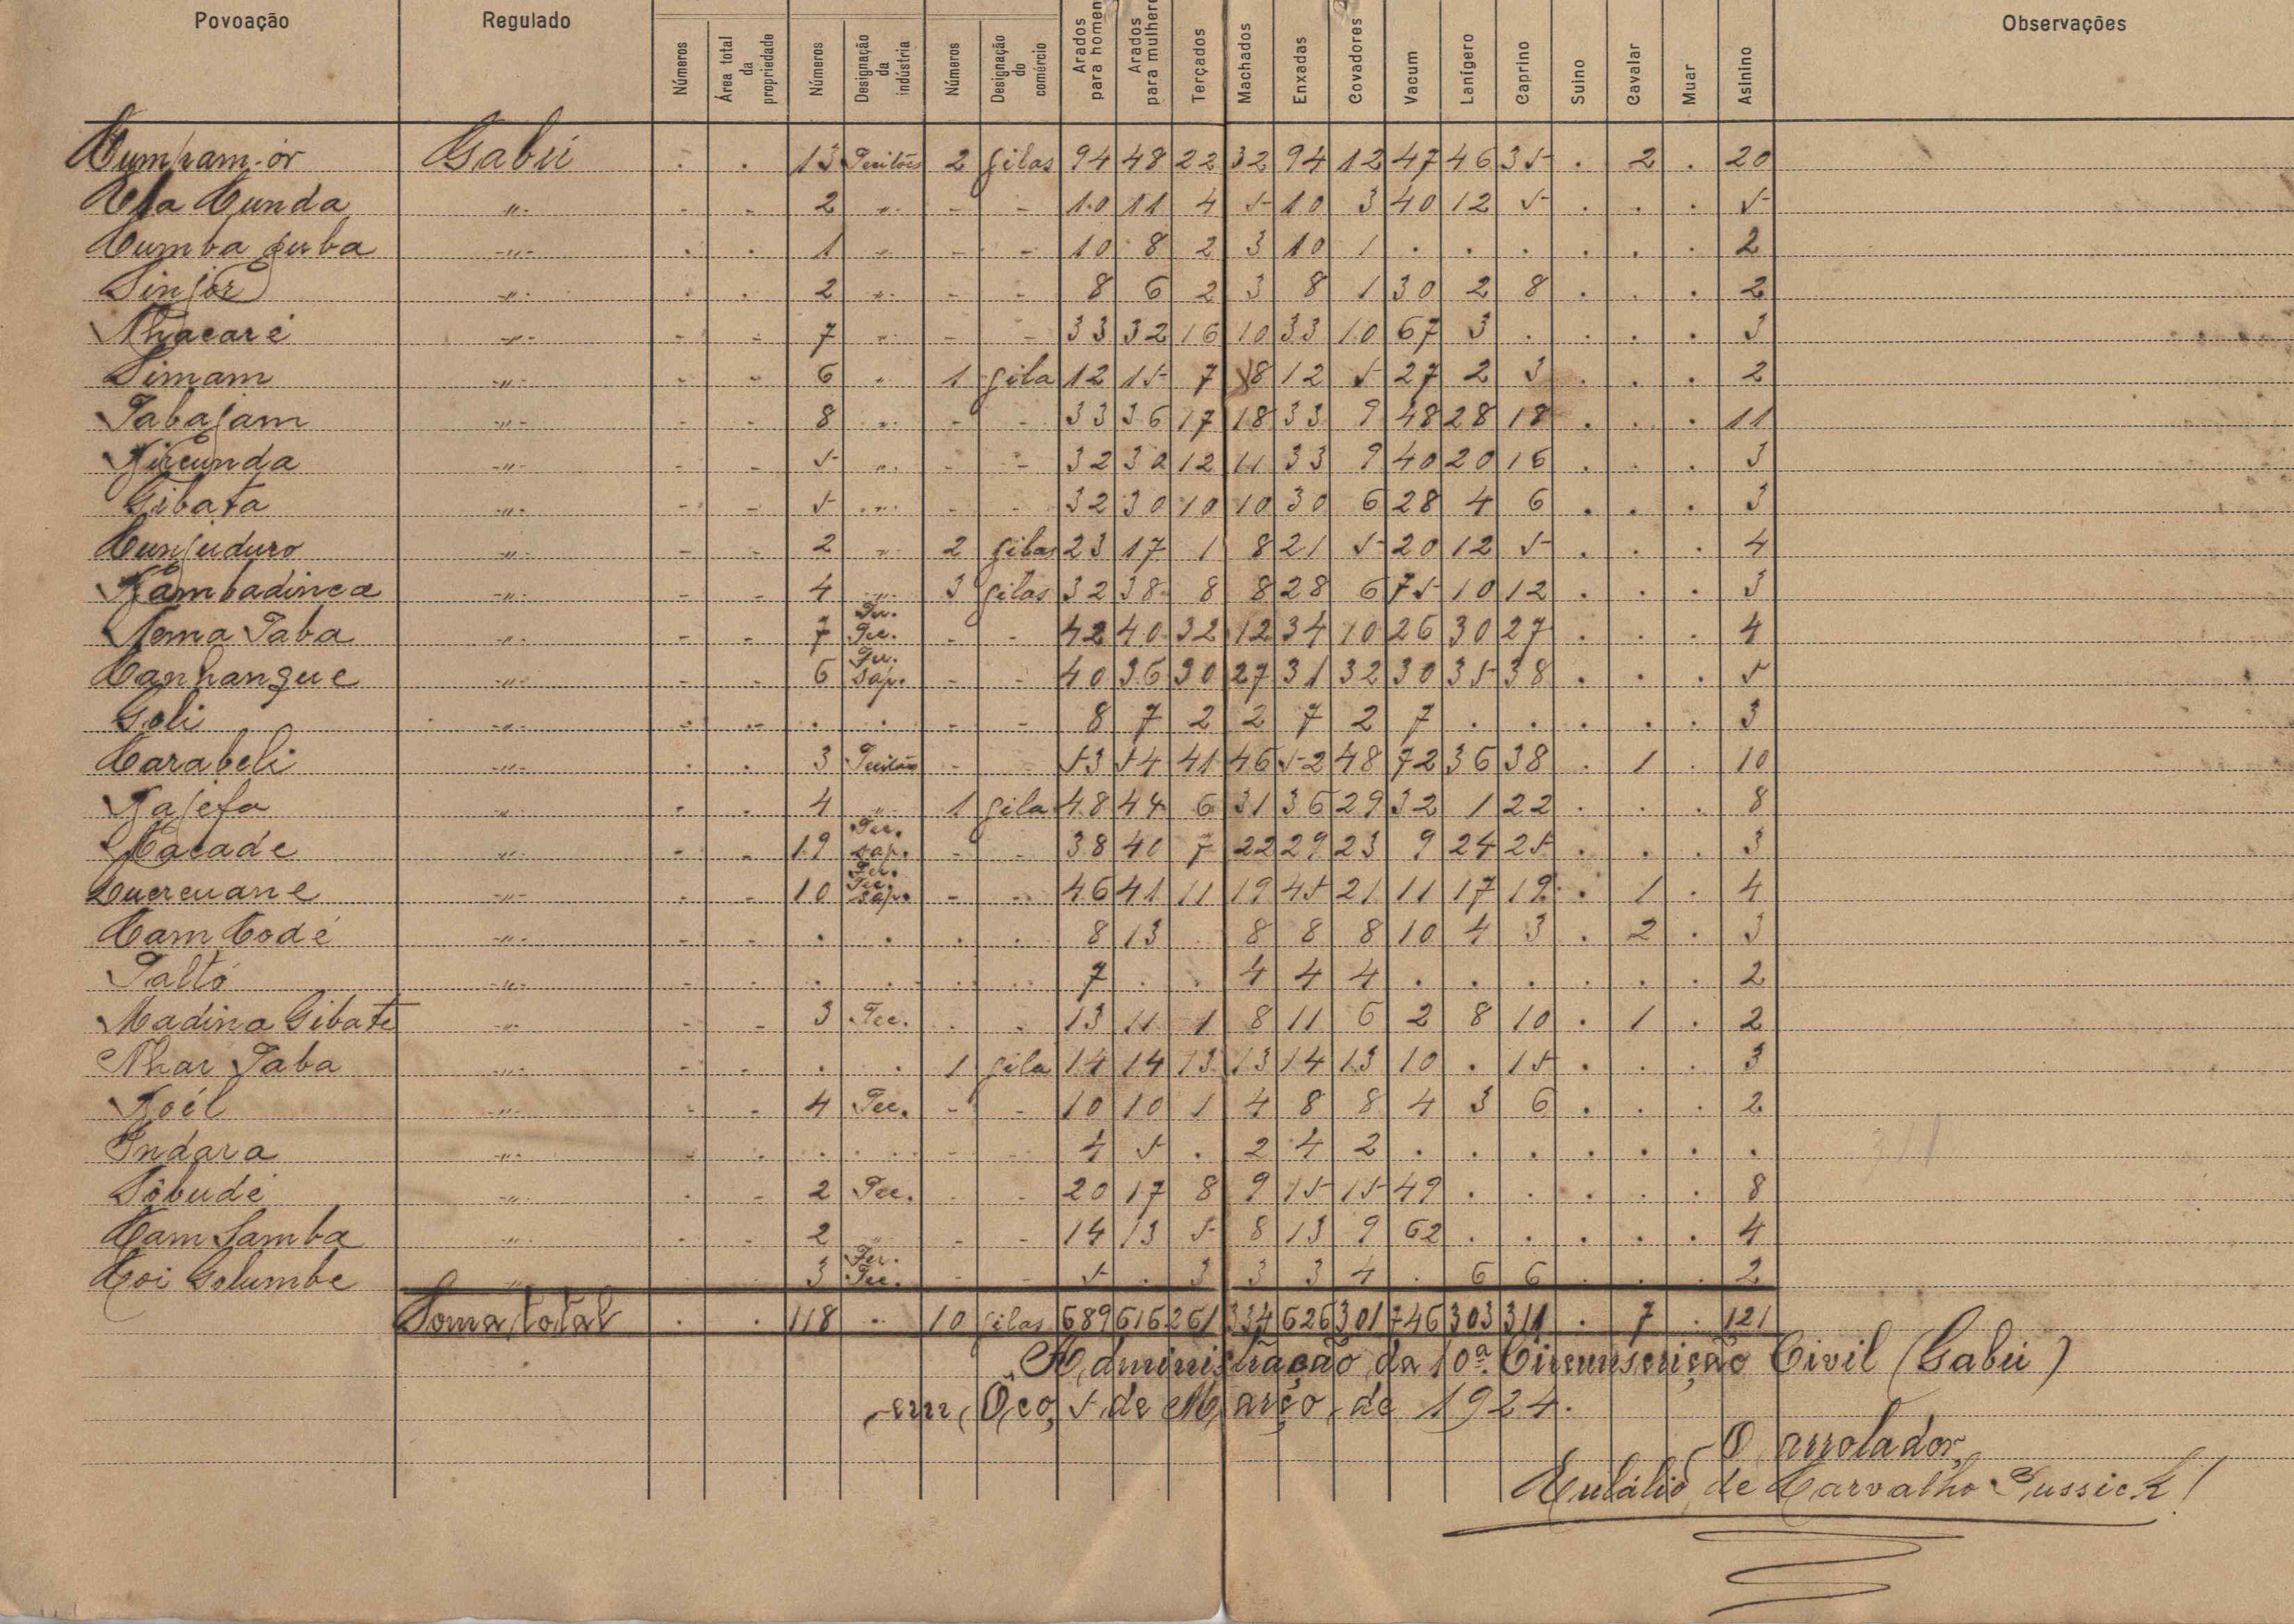 Povoação Regulado Números Área total da propriedade Números Designação da indústria Números Designação do comércio Arados para homens Arados para mulheres Terçados Machados Enxadas Covadores Vacum Lanígero Caprino Suino Cavalar Muar Asinino Observações
Gabú . . 13 2 gilas 94 48 22 32 94 12 47 46 35 . 2 . 20
Cunda -"- - - 2 -"- - - 10 11 4 5 10 3 40 12 5 . . . 5
Cumba juba -"- . . 1 -"- - - 10 8 2 3 10 1 . . . . . . 2
Sinjor -"- . . 2 -"- - - 8 6 2 3 8 1 30 2 8 . . . 2
Nhacaré -"- - - 7 -"- - - 33 32 16 10 33 10 67 3 . . . . 3
Simam -"- - - 6 -"- 1 gila 12 15 7 8 12 5 27 2 3 . . . 2
Tabajam -"- - - 8 -"- - - 33 36 17 18 33 9 48 28 18 . . . 11
-"- - - 5 -"- - - 32 30 12 11 33 9 40 20 16 . . . 3
Gibata -"- - - 5 -"- - - 32 30 10 10 30 6 28 4 6 . . . 3
Cunjuduro -"- - - 2 -"- 2 gilas 23 17 1 8 21 5 20 12 5 . . . 4
-"- - - 4 -"- 3 gilas 32 38 8 8 28 6 75 10 12 . . . 3
Taba -"- - - 7 Fer. Tec. - - 42 40 32 12 34 10 26 30 27 . . . 4
Canhangue -"- - - 6 Fer. sap. - - 40 36 30 27 31 32 30 35 38 . . . 5
Goli -"- - - . . - - 8 7 2 2 7 2 7 . . . . . 3
Carabeli -"- . . 3 - - 53 54 41 46 52 48 72 36 38 . 1 . 10
-"- . . 4 -"- 1 gila 48 44 6 31 36 29 32 1 22 . . . 8
Cacade -"- - - 19 Fer. sap. - - 38 40 7 22 29 23 9 24 25 . . . 3
Cuercuane -"- - - 10 Fer. Tec. sap. - - 46 41 11 19 45 21 11 17 19 . 1 . 4
Cam Codé -"- - - . . . . 8 13 8 8 8 10 4 3 . 2 . 3
Taltó -"- - - . . . . 7 . . 4 4 4 . . . . . . 2
Madina Gibate -"- - - 3 Tec. . . 13 11 1 8 11 6 2 8 10 . 1 . 2
Nhar Taba -"- - - . . 1 gila 14 14 13 13 14 13 10 . 15 . . . 3
-"- - - 4 Tec. - - 10 10 1 4 8 8 4 3 6 . . . 2
Indara -"- - - . . - - 4 5 . 2 4 2 . . . . . . .
Sôbudé -"- - - 2 Tec. - - 20 17 8 9 15 15 49 . . . . . 8
Cam Samba -"- - - 2 -"- - - 14 13 5 8 13 9 62 . . . . . 4
Coi Golumbe -"- 3 Fer. Tec. - - 5 . 3 3 3 4 . 6 6 . . . 2
Soma total . . 118 . 10 gilas 689 616 261 334 626 301 746 303 311 . 7 . 121
Administração da 10ª. Circunscrição Civil (Gabú)
em Oco, 5 de Março de 1924.
O arrolador,
Eulálio de Carvalho